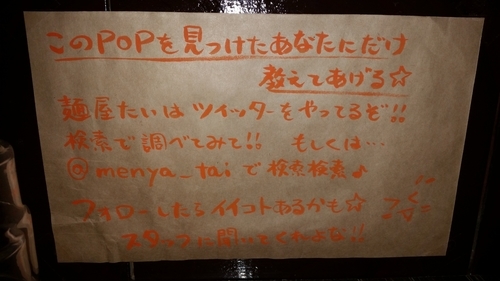 このPOPを見つけたあなたにだけ
教えてあげる☆
麺屋たいはツイッターをやってるぞ!!
検索で調べてみて!! もしくは…
@menya_tai で検索検索♪
フォローしたらイイコトあるかも☆
スタッフに聞いてくれよな!!